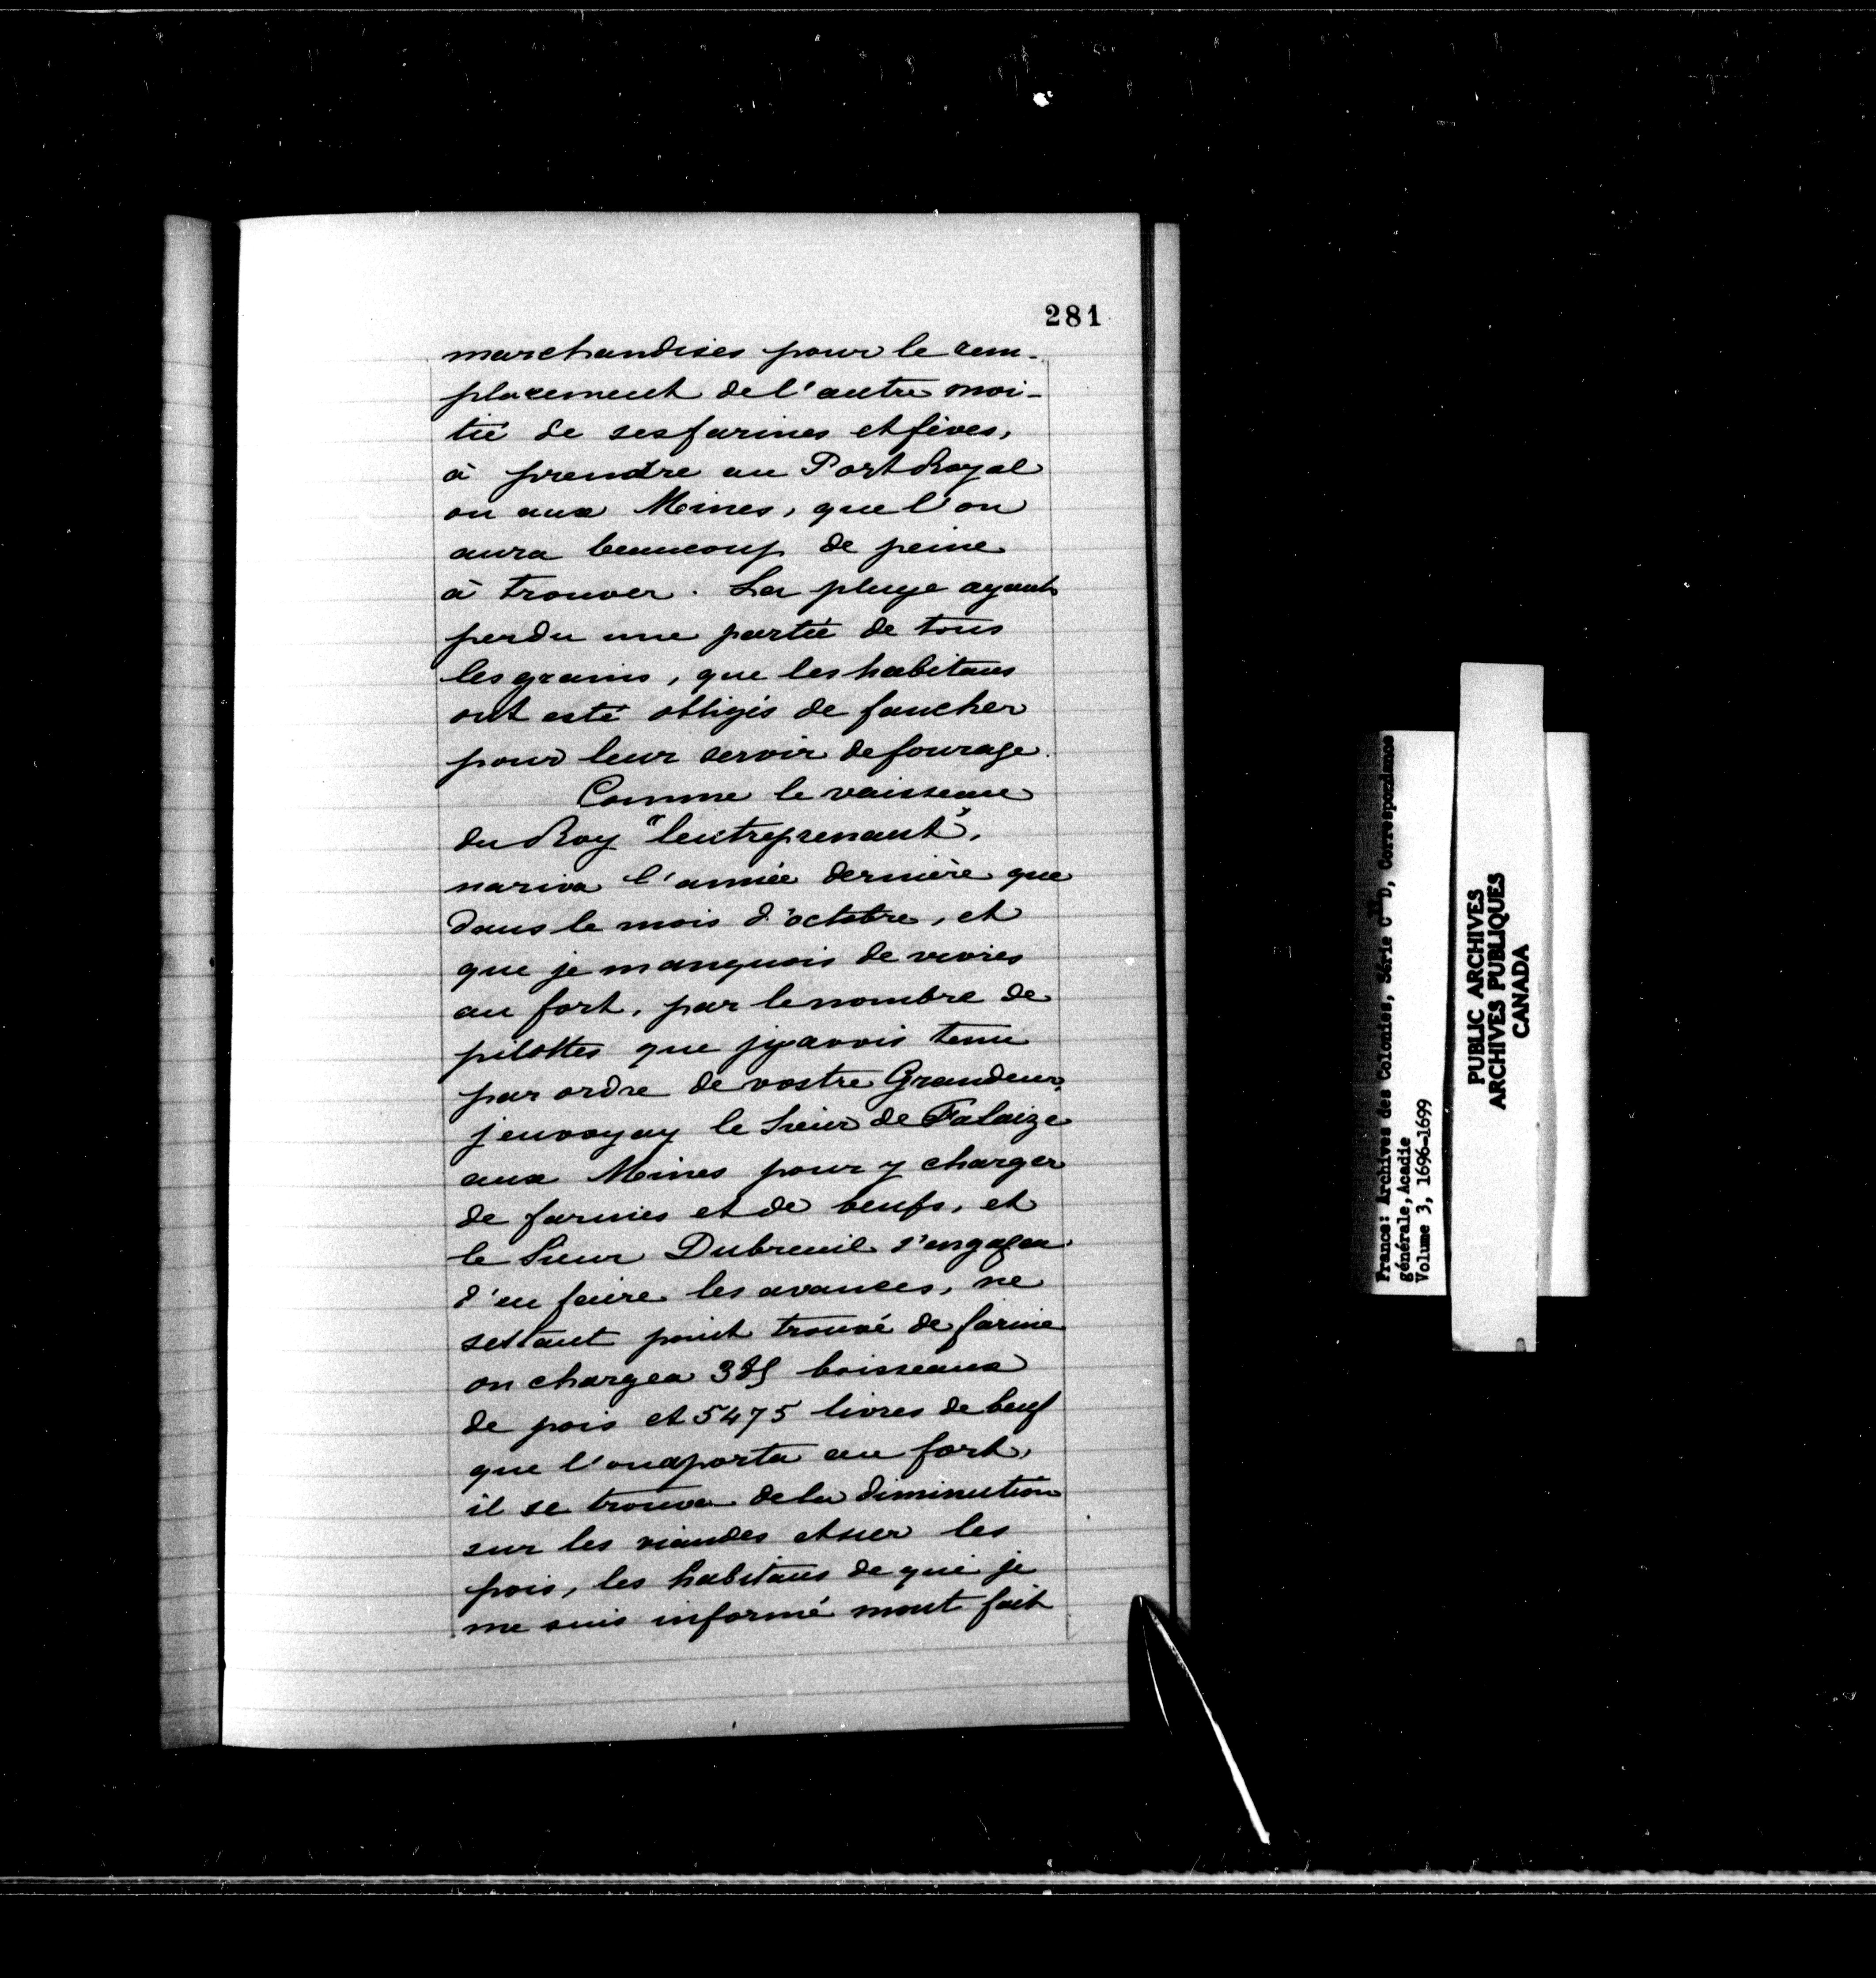 281
marchandises pour le rem-
placement de l'autre moi-
tié de ses farines et fèves,
à prendre au Port Royal
ou aux Mines, que l'on
aura beaucoup de peine
à trouver. La pluye ayant
perdu une partie de tous
les grains, que les habitans
ont esté obligés de faucher
pour leur servir de fourage.
Comme le vaisseau
du Roy "lentreprenant",
nariva l'année dernière que
dans le mois d'octobre, et
que je manquois de vivres
au fort, par le nombre de
pilottes que jy avois tenu
par ordre de vostre Grandeur,
jenvoyay le Sieur de Falaize
aux Mines pour y charger
de farines et de beufs, et
le Sieur Dubreuil s'engagea
d'en faire les avances, ne
sestant point trouvé de farine
on chargea boisseaux
de pois et 5475 livres de beuf
que l'on aporta au fort,
il se trouva de la diminution
sur les viandes et sur les
pois, les habitans de qui je
me suis informé mont fait
France: Archives des Colonies, Série C11 D, Correspondance
générale, Acadie
Volume 3, 1696-1699
PUBLIC ARCHIVES
ARCHIVES PUBLIQUES
CANADA